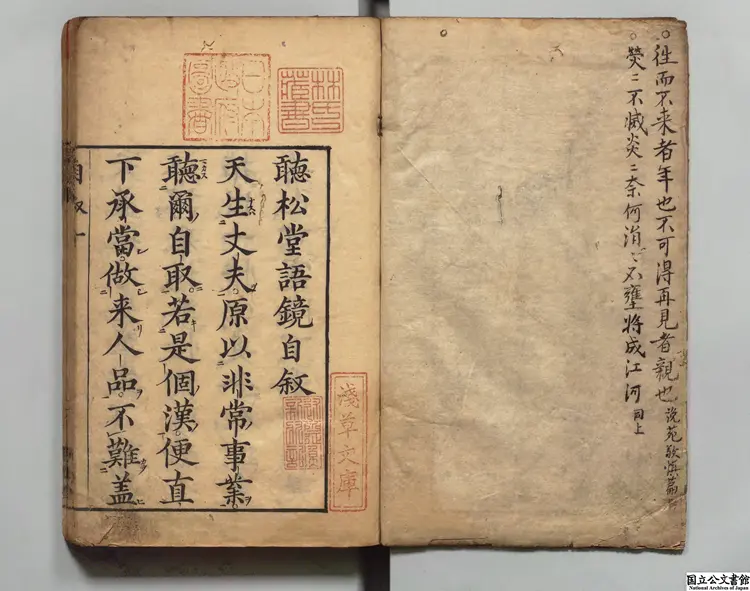 ○往而不来者年也不可得再見者親也 説苑敬慎篇
○熒〻不滅炎〻奈何涓〻不壅将成江河 同上
林氏藏書
日本政府圖書
聽松堂語鏡自叙
淺草文庫
天生丈夫原以非常事業
聽爾自取若是個漢便直
下承當做来人品不難盖
自叙